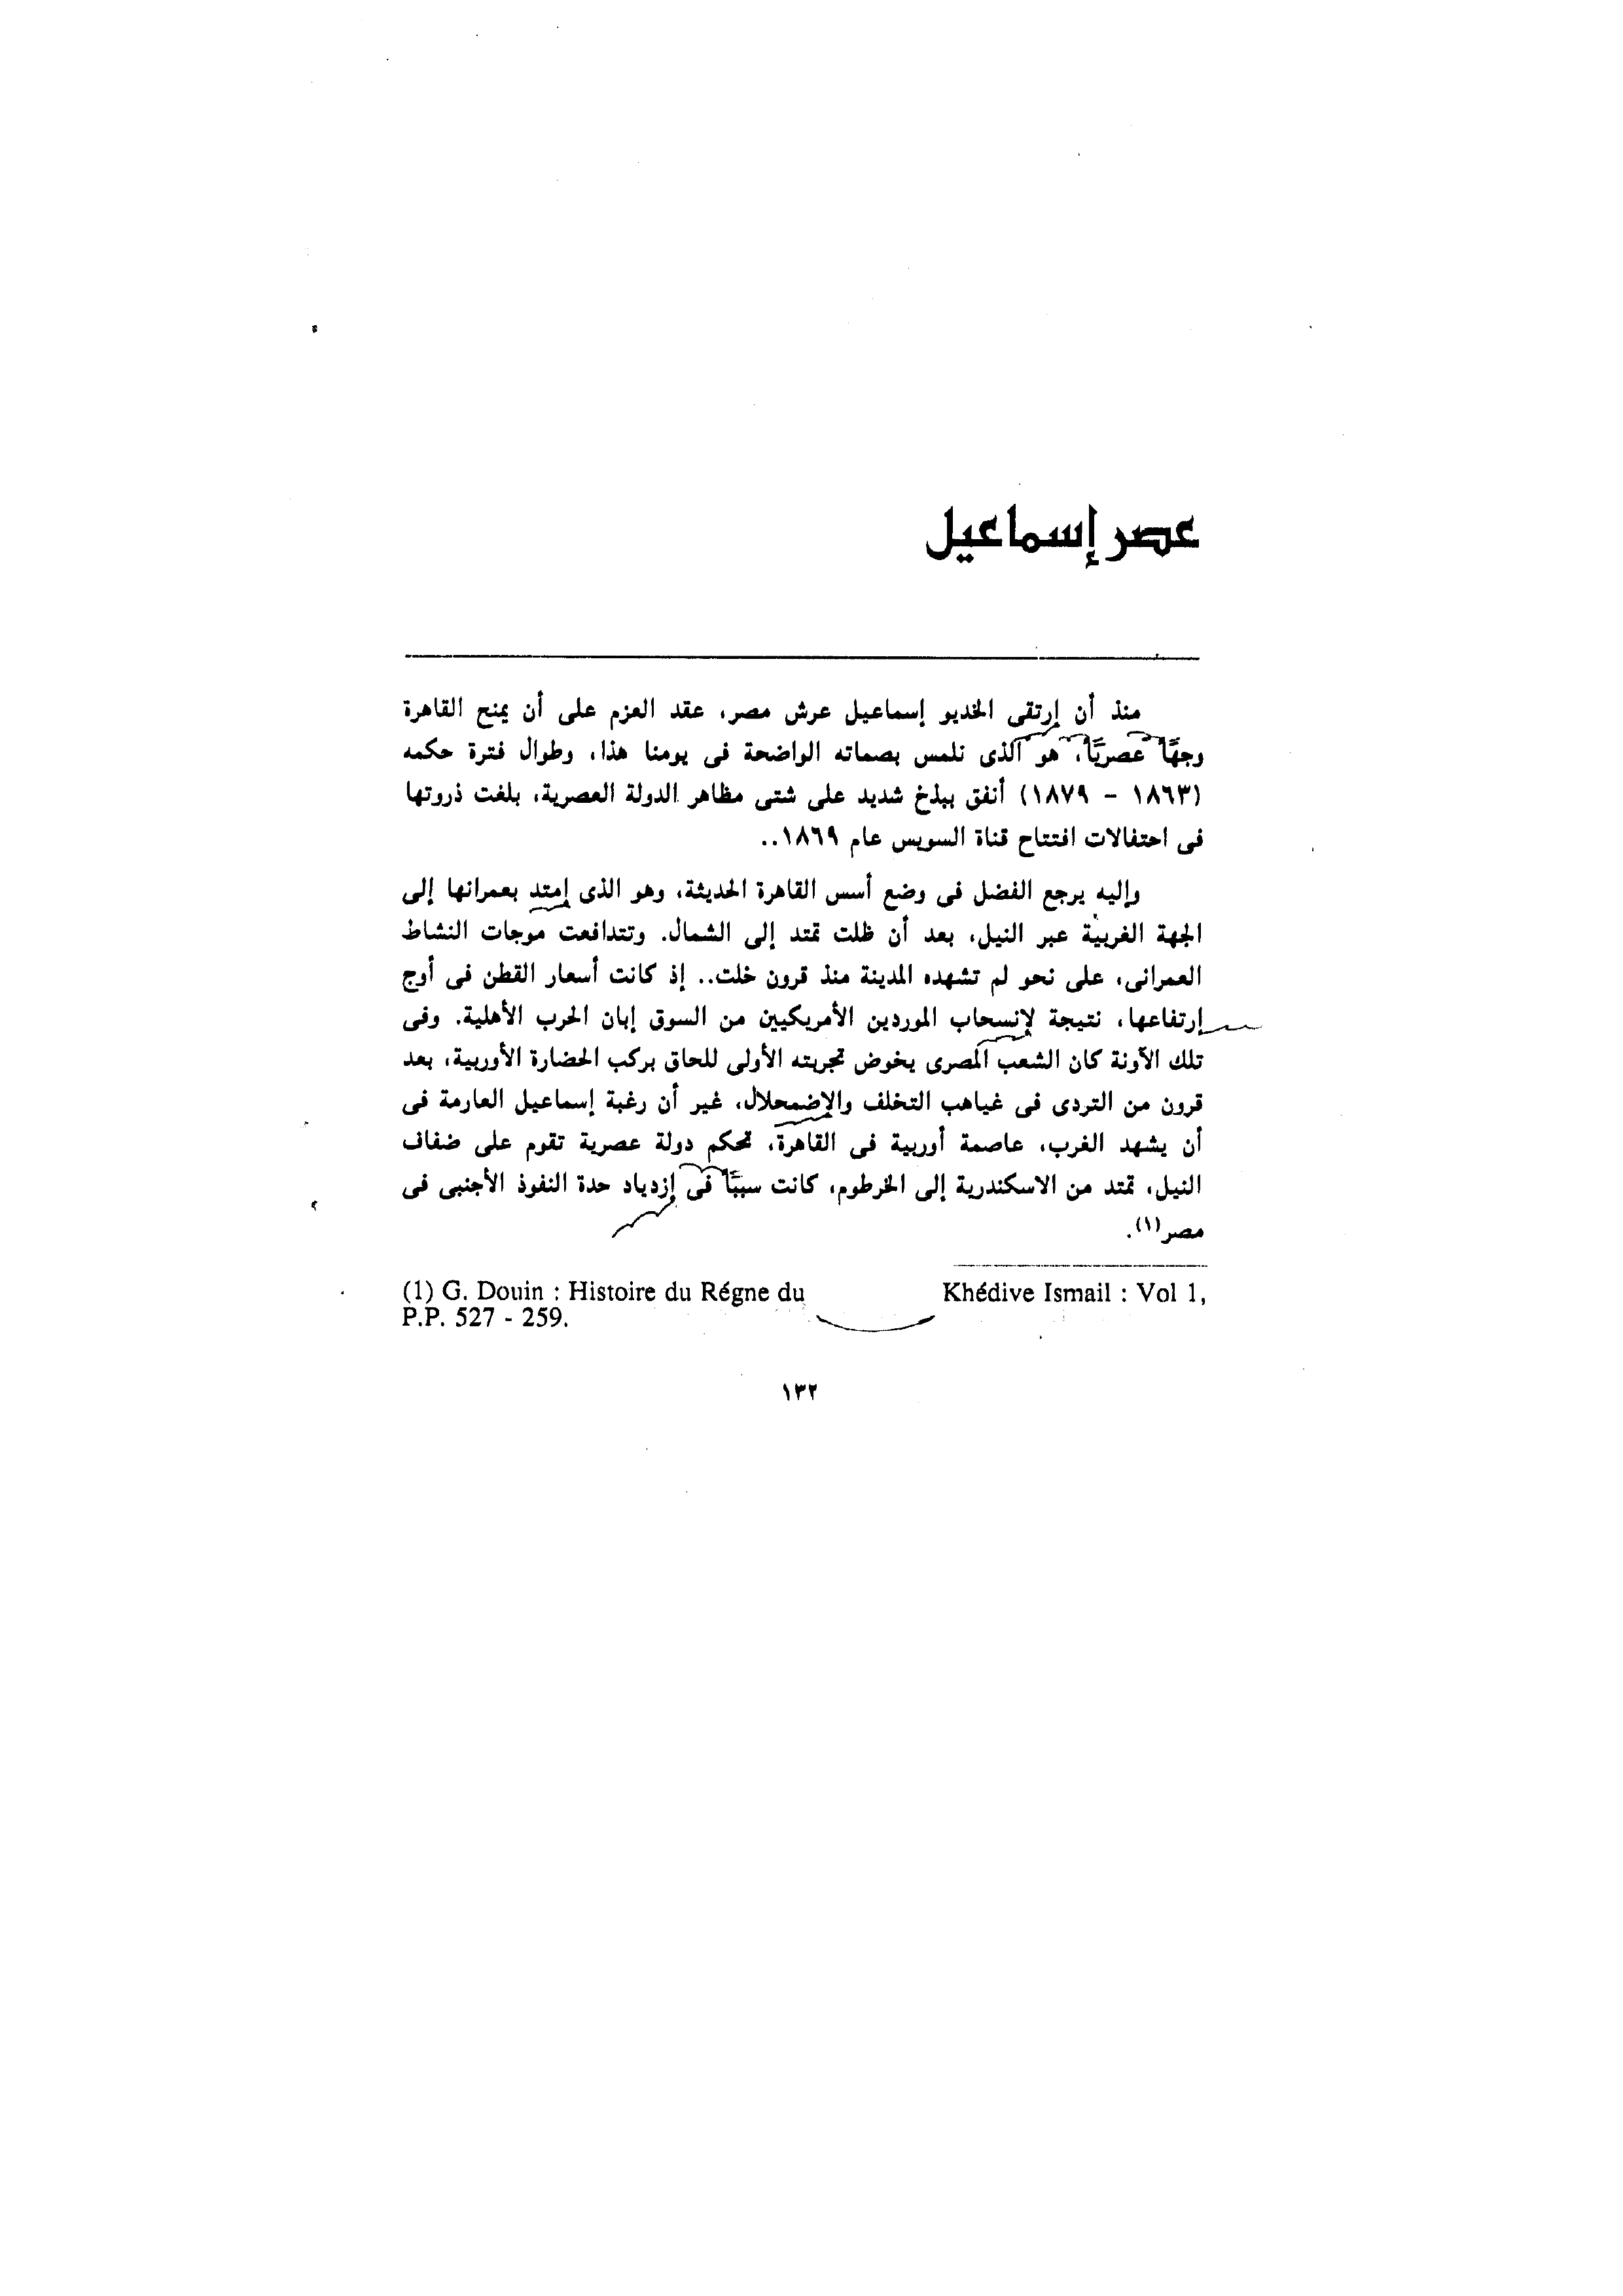 عصر إسماعيل
منذ أن إرتقى الخديو إسماعيل عرش مصر، عقد العزم على أن يمنح القاهرة
وجهًا عصريًا، هو الذى نلمس بصماته الواضحة فى يومنا هذا، وطوال فترة حكمه
(١٨٦٣ - ١٨٧٩) أنفق ببذخ شديد على شتى مظاهر الدولة العصرية، بلغت ذروتها
فى احتفالات افتتاح قناة السويس عام ١٨٦٩..
وإليه يرجع الفضل فى وضع أسس القاهرة الحديثة، وهو الذى إمتد بعمرانها إلى
الجهة الغربية عبر النيل، بعد أن ظلت تمتد إلى الشمال. وتتدافعت موجات النشاط
العمرانى، على نحو لم تشهده المدينة منذ قرون خلت.. إذ كانت أسعار القطن فى أوج
إرتفاعها، نتيجة لإنسحاب الموردين الأمريكيين من السوق إبان الحرب الأهلية. وفى
تلك الآونة كان الشعب المصرى يخوض تجربته الأولى للحاق بركب الحضارة الأوربية، بعد
قرون من التردى فى غياهب التخلف والإضمحلال، غير أن رغبة إسماعيل العارمة فى
أن يشهد الغرب، عاصمة أوربية فى القاهرة، تحكم دولة عصرية تقوم على ضفاف
النيل، تمتد من الاسكندرية إلى الخرطوم، كانت سببًا فى إزدياد حدة النفوذ الأجنبى فى
مصر(١).
(1) G. Douin : Histoire du Régne du Khédive Ismail : Vol 1,
P.P. 527 - 259.
١٣٢